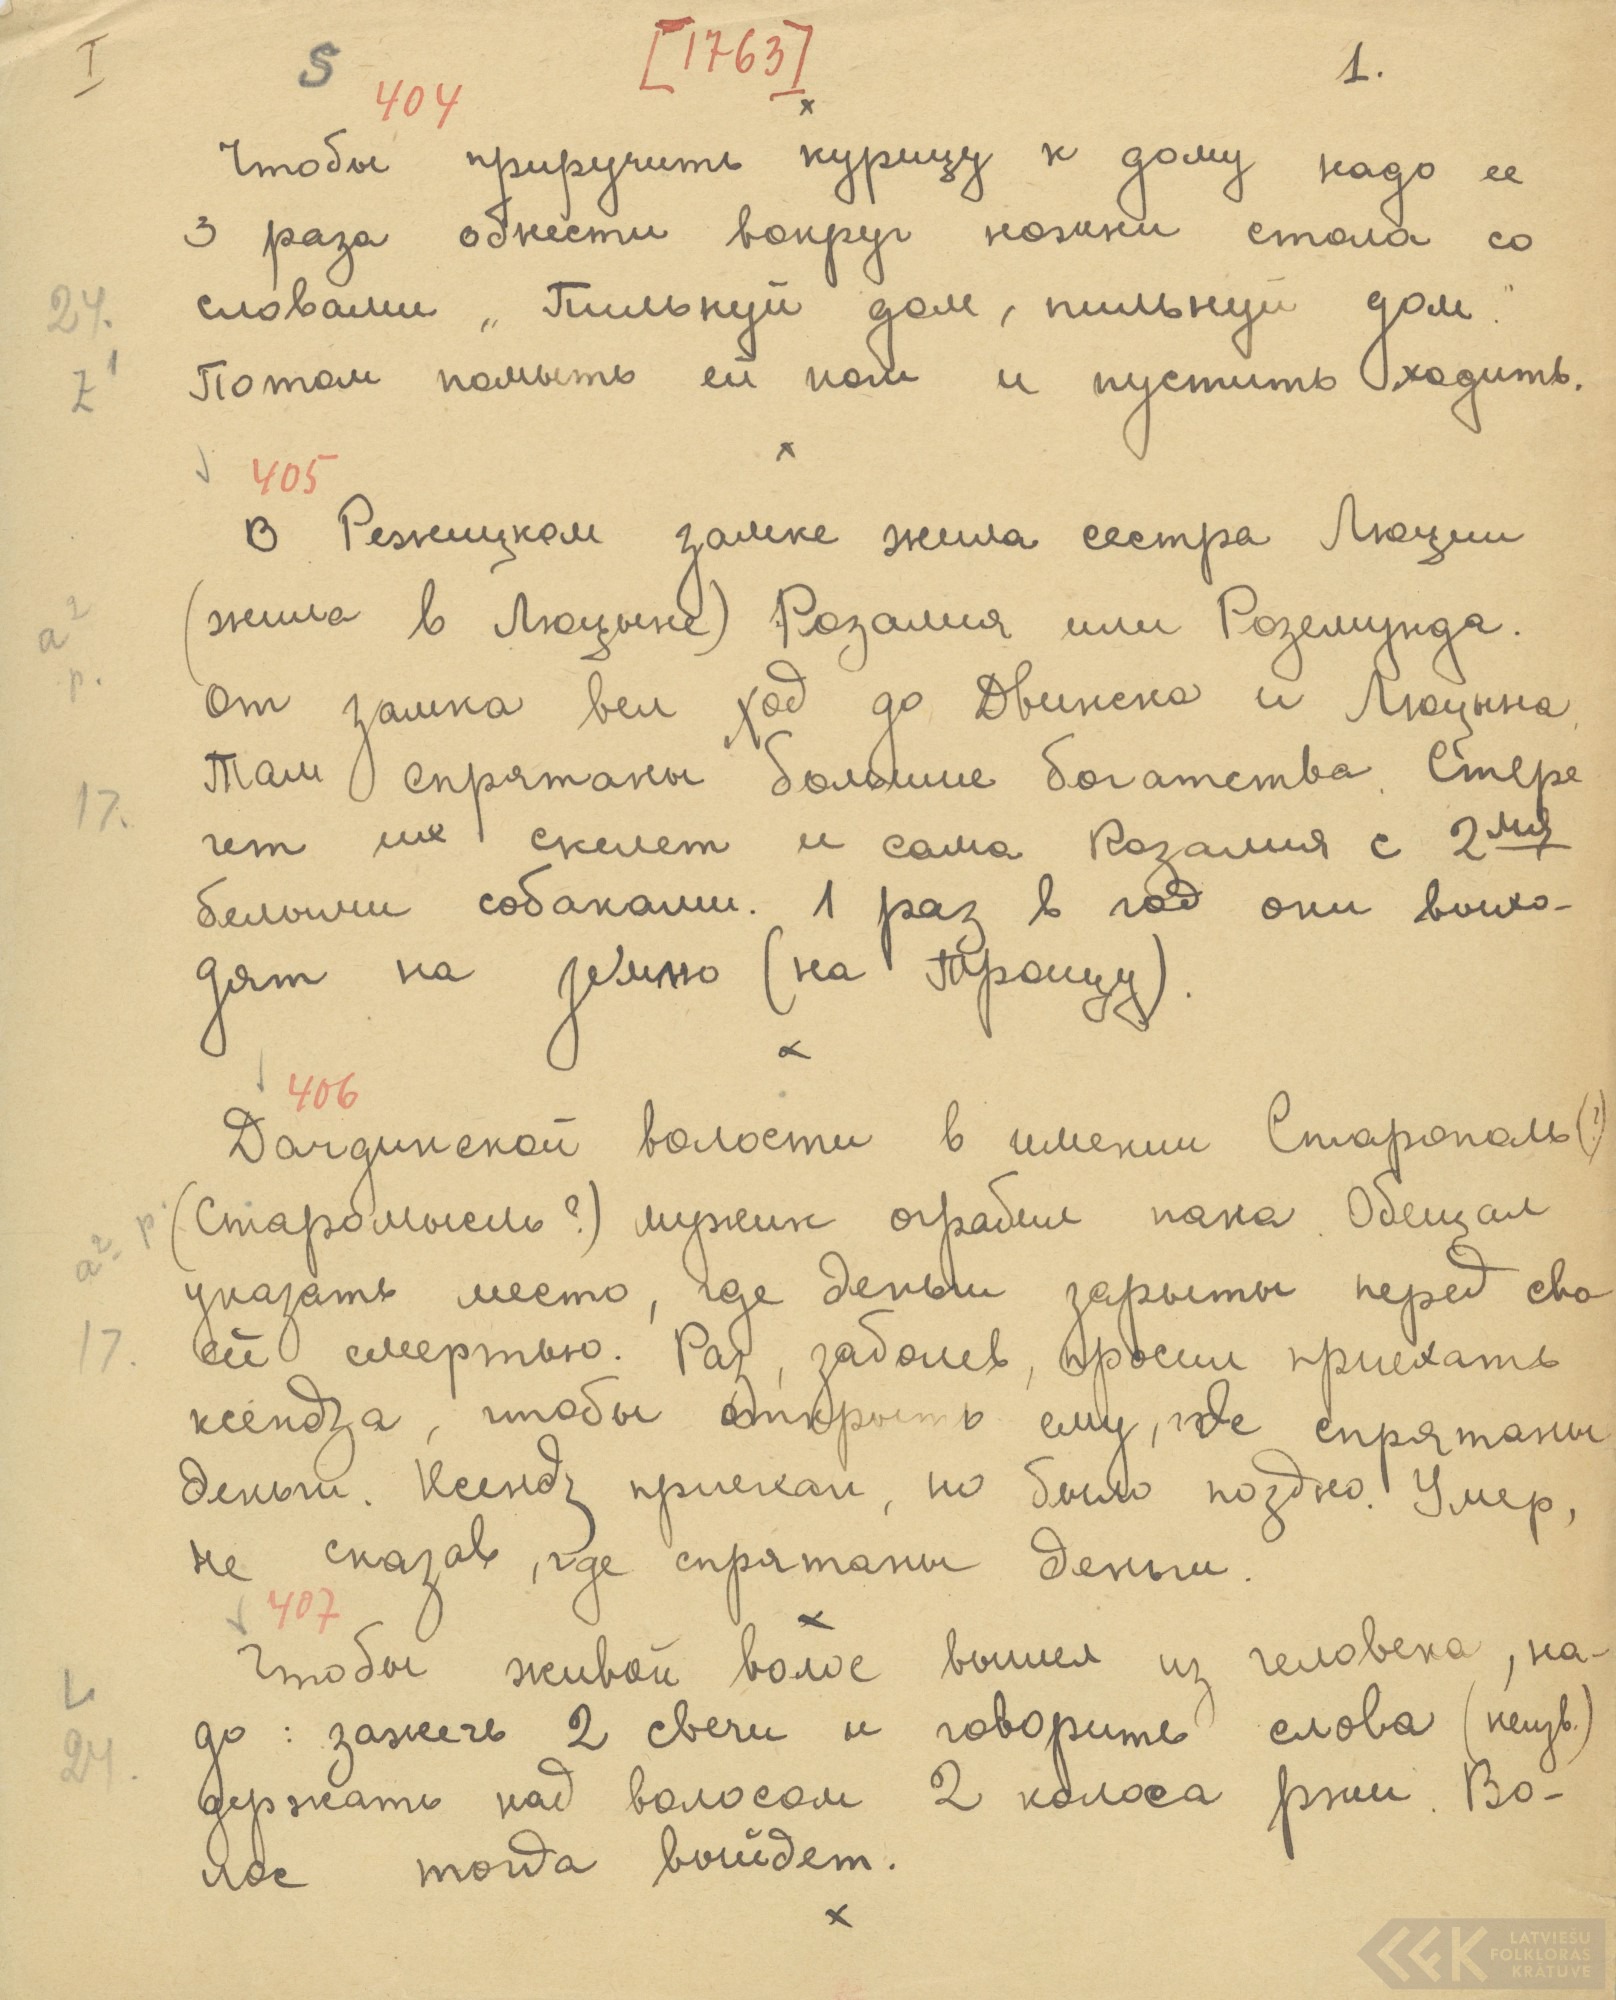 I S [1763] 1.
404
x
Чтобы приручить курицу к дому надо ее
3 раза обнести вокруг ножки стола со
24. словами „Пильнуй дом, пильнуй дом."
Z¹ Потом помыть ей ноги и пустить ходить.
x
405
В Режицком замке жила сестра Люции
a² (жила в Люцыне) Розалия или Роземунда.
p. От замка вел ход до Двинска и Люцына.
Там спрятаны большие богатства. Стере
17. чет их скелет и сама Розалия с 2мя
белыми собаками. 1 раз в год они выхо-
дят на землю (на Троицу).
x
406
Дагдинской волости в имении Старополь (?)
a². p. (Старомысль?) мужик ограбил пана. Обещал
указать место, где деньги зарыты перед сво
17. ей смертью. Раз, заболев, просил приехать
ксендза, чтобы открыть ему, где спрятаны
деньги. Ксендз приехал, но было поздно. Умер,
не сказав, где спрятаны деньги.
407
x
Чтобы живой волос вышел из человека, на-
L до: зажечь 2 свечи и говорить слова (неизв.)
24. держать над волосом 2 колоса ржи. Во-
лос тогда выйдет.
x
LATVIEŠU
FOLKLORAS
KRĀTUVE